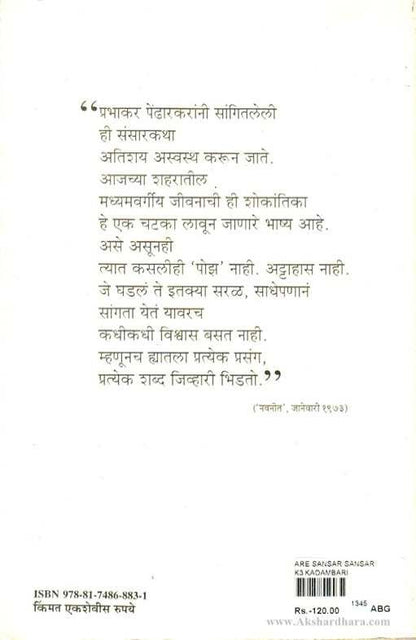 “प्रभाकर पेंढारकरांनी सांगितलेली
ही संसारकथा
अतिशय अस्वस्थ करून जाते.
आजच्या शहरातील
मध्यमवर्गीय जीवनाची ही शोकांतिका
हे एक चटका लावून जाणारे भाष्य आहे.
असे असूनही
त्यात कसलीही ‘पोझ’ नाही. अट्टाहास नाही.
जे घडलं ते इतक्या सरळ, साधेपणानं
सांगता येतं यावरच
कधीकधी विश्वास बसत नाही.
म्हणूनच ह्यातला प्रत्येक प्रसंग,
प्रत्येक शब्द जिव्हारी भिडतो.”
(‘नवनीत’, जानेवारी १९७३)
ARE SANSAR SANSAR
K3 KADAMBARI
ISBN 978-81-7486-883-1
किंमत एकशेवीस रुपये
Rs.-120.00 1345 ABG
www.Akshardhara.com